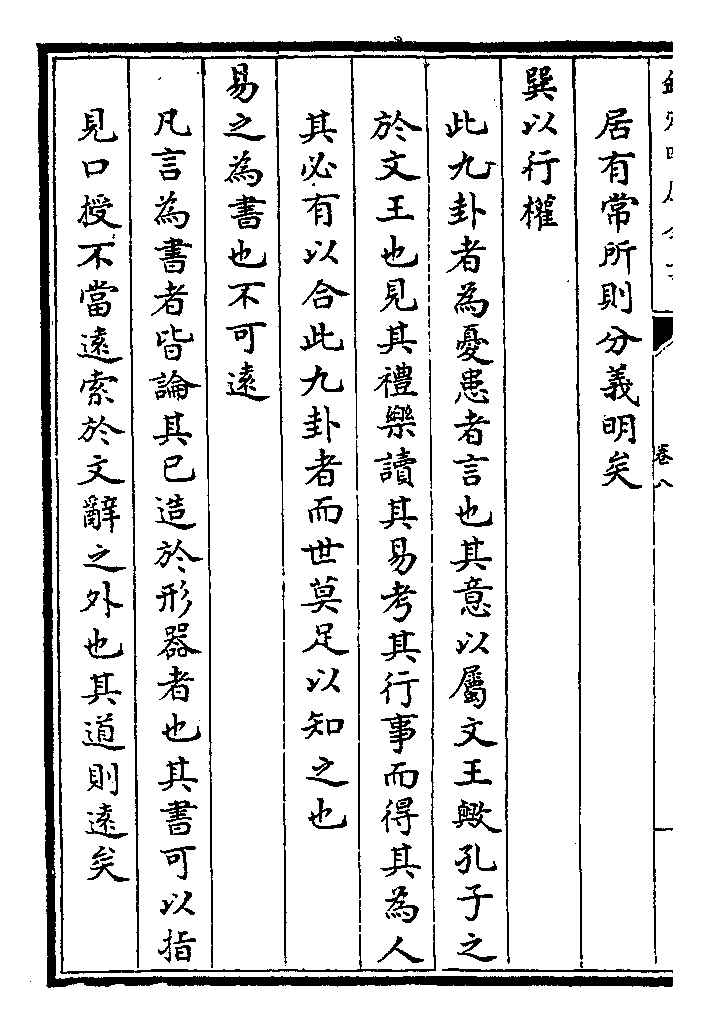 居有常所則分義明矣
巽以行權
此九卦者為憂患者言也其意以屬文王歟孔子之
於文王也見其禮樂讀其易考其行事而得其為人
其必有以合此九卦者而世莫足以知之也
易之為書也不可遠
凡言為書者皆論其已造於形器者也其書可以指
見口授不當遠索於文辭之外也其道則遠矣
卷八